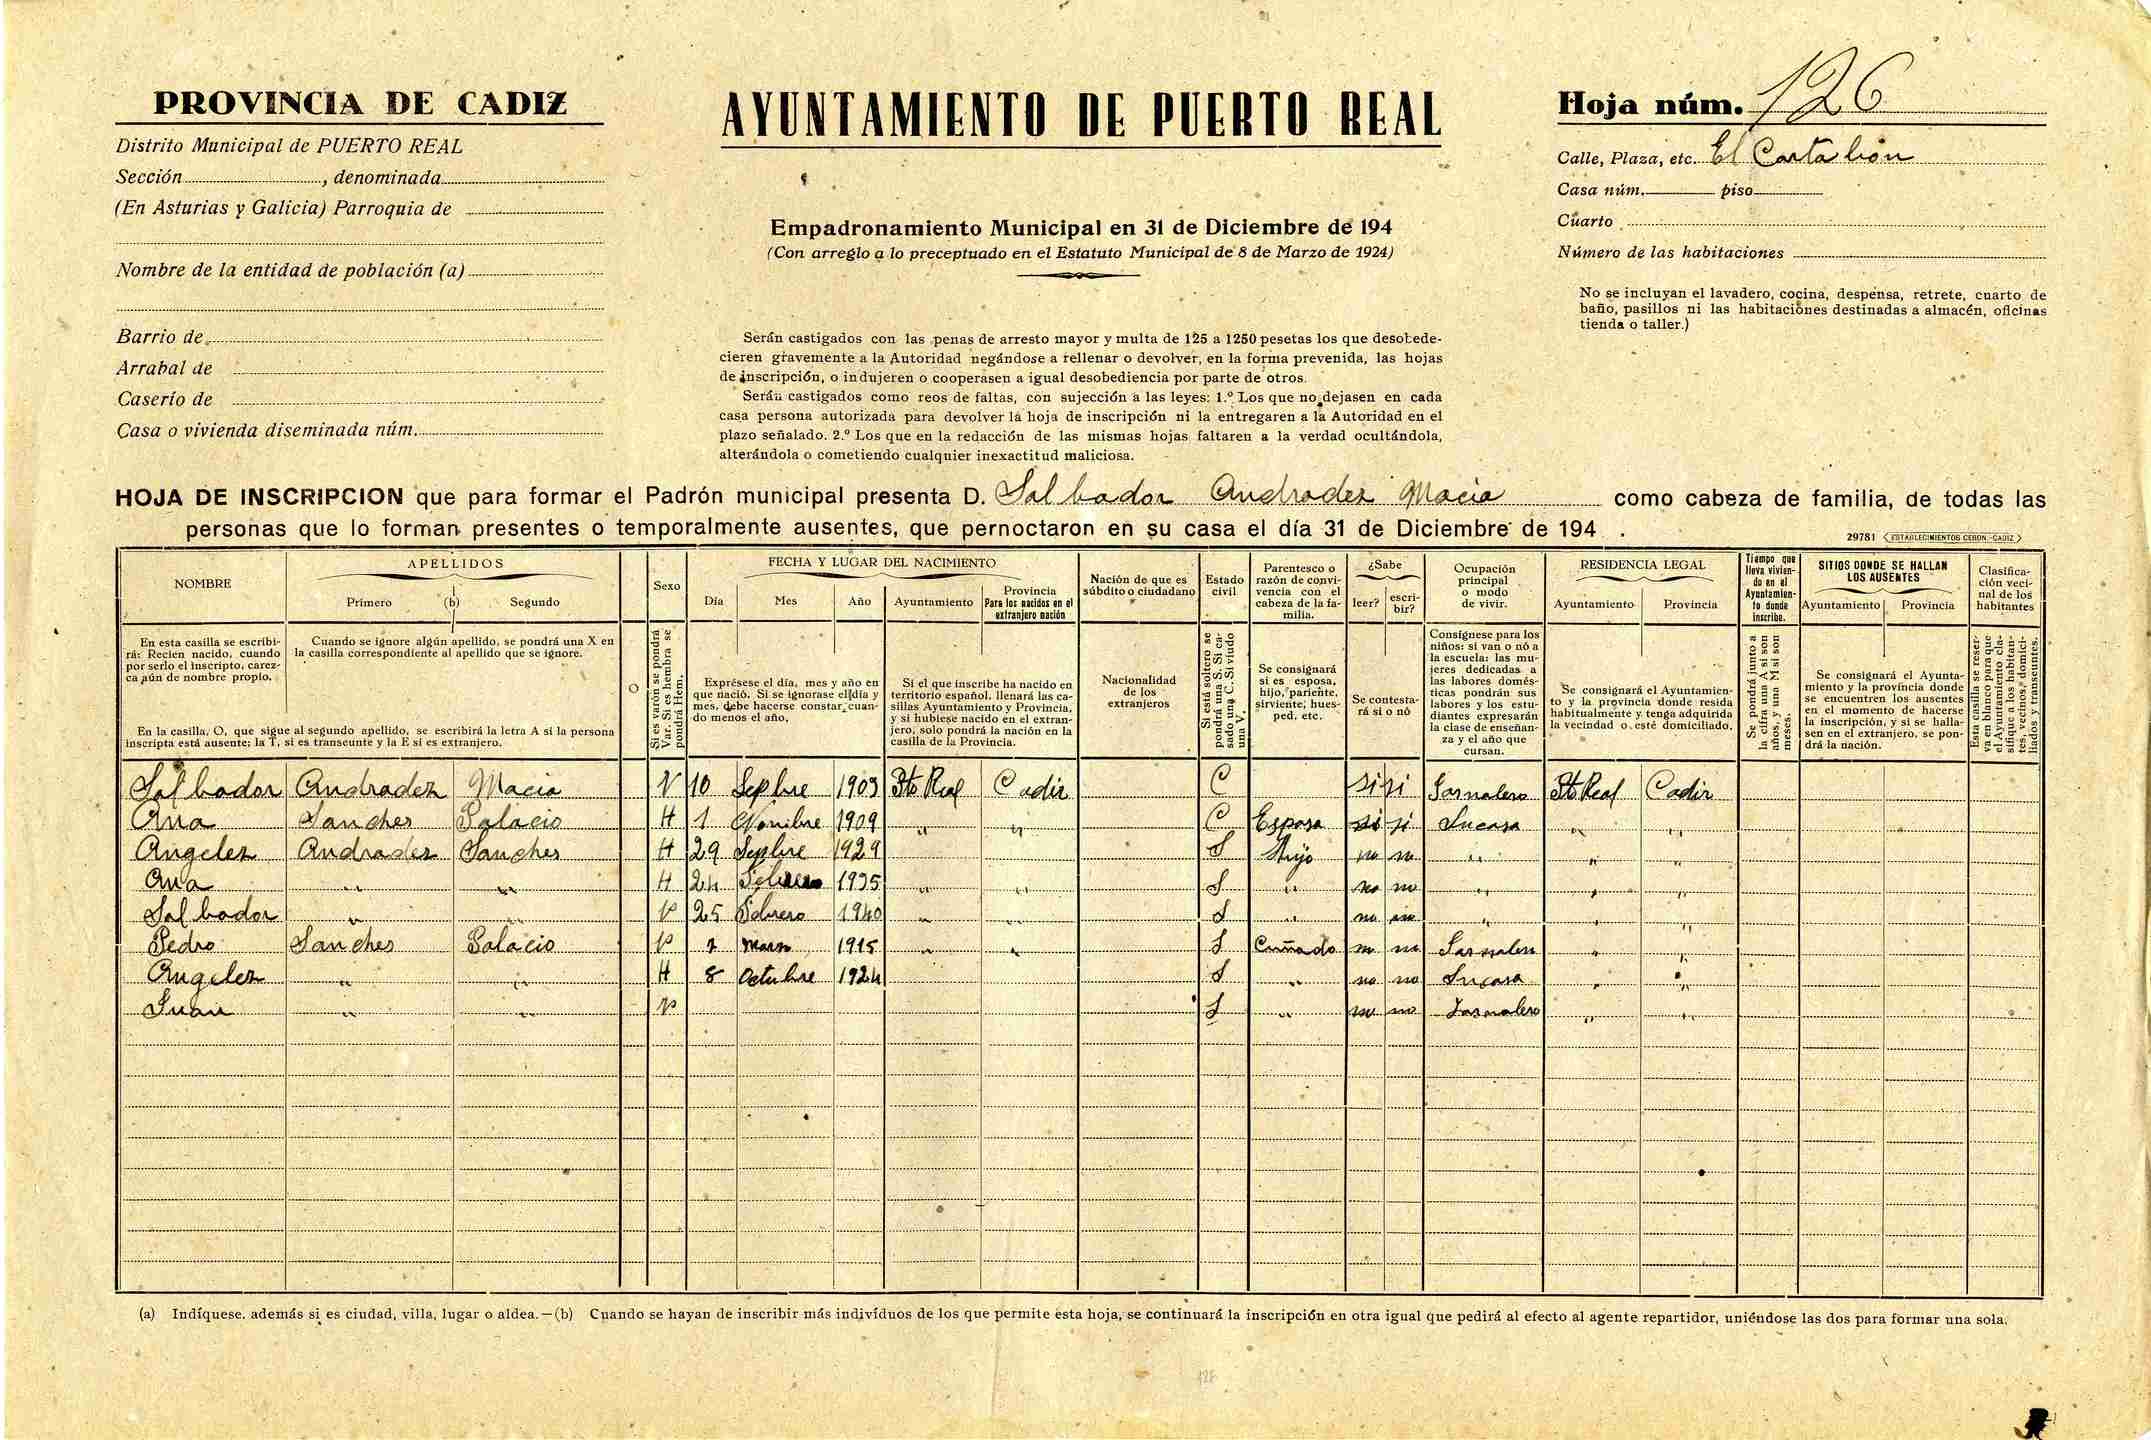 PROVINCIA DE CADIZ
Distrito Municipal de PUERTO REAL
Sección , denominada
(En Asturias y Galicia) Parroquia de
Nombre de la entidad de población (a)
Barrio de
Arrabal de
Caserío de
Casa o vivienda diseminada núm.
AYUNTAMIENTO DE PUERTO REAL
Empadronamiento Municipal en 31 de Diciembre de 194
(Con arreglo a lo preceptuado en el Estatuto Municipal de 8 de Marzo de 1924)
Serán castigados con las penas de arresto mayor y multa de 125 a 1250 pesetas los que desobede-
cieren gravemente a la Autoridad negándose a rellenar o devolver, en la forma prevenida, las hojas
de inscripción, o indujeren o cooperasen a igual desobediencia por parte de otros.
Serán castigados como reos de faltas, con sujección a las leyes: 1.º Los que no dejasen en cada
casa persona autorizada para devolver la hoja de inscripción ni la entregaren a la Autoridad en el
plazo señalado. 2.º Los que en la redacción de las mismas hojas faltaren a la verdad ocultándola,
alterándola o cometiendo cualquier inexactitud maliciosa.
Hoja núm. 126
Calle, Plaza, etc. El Cartabón
Casa núm. piso
Cuarto
Número de las habitaciones
No se incluyan el lavadero, cocina, despensa, retrete, cuarto de
baño, pasillos ni las habitaciones destinadas a almacén, oficinas
tienda o taller.)
HOJA DE INSCRIPCION que para formar el Padrón municipal presenta D. Salbador Andradez Macia como cabeza de familia, de todas las
personas que lo forman presentes o temporalmente ausentes, que pernoctaron en su casa el día 31 de Diciembre de 194 .
29781 ESTABLECIMIENTOS CERON.-CADIZ
NOMBRE
APELLIDOS
Primero (b) Segundo
O
Sexo
FECHA Y LUGAR DEL NACIMIENTO
Día Mes Año Ayuntamiento
Provincia
Para los nacidos en el
extranjero nación
Nación de que es
súbdito o ciudadano
Estado
civil
Parentesco o
razón de convi-
vencia con el
cabeza de la fa-
milia.
¿Sabe
leer? escri-
bir?
Ocupación
principal
o modo
de vivir.
RESIDENCIA LEGAL
Ayuntamiento Provincia
Tiempo que
lleva vivien-
do en el
Ayuntamien-
to donde
inscribe.
SITIOS DONDE SE HALLAN
LOS AUSENTES
Ayuntamiento Provincia
Clasifica-
ción veci-
nal de los
habitantes
En esta casilla se escribi-
rá: Recien nacido, cuando
por serlo el inscripto, carez-
ca aún de nombre propio.
Cuando se ignore algún apellido, se pondrá una X en
la casilla correspondiente al apellido que se ignore.
En la casilla, O, que sigue al segundo apellido, se escribirá la letra A si la persona
inscripta está ausente; la T, si es transeunte y la E si es extranjero.
Si es varón se pondrá
Var. Si es hembra se
pondrá Hem.
Exprésese el día, mes y año en
que nació. Si se ignorase el día y
mes, debe hacerse constar cuan-
do menos el año.
Si el que inscribe ha nacido en
territorio español, llenará las ca-
sillas Ayuntamiento y Provincia,
y si hubiese nacido en el extran-
jero, solo pondrá la nación en la
casilla de la Provincia.
Nacionalidad
de los
extranjeros
Si está soltero se
pondrá una S. Si ca-
sado una C. Si viudo
una V.
Se consignará
si es esposa,
hijo, pariente,
sirviente, hues-
ped, etc.
Se contesta-
rá si o nó
Consígnese para los
niños: si van o nó a
la escuela: las mu-
jeres dedicadas a
las labores domés-
ticas pondrán sus
labores y los estu-
diantes expresarán
la clase de enseñan-
za y el año que
cursan.
Se consignará el Ayuntamien-
to y la provincia donde resida
habitualmente y tenga adquirida
la vecindad o esté domiciliado.
Se pondrá junto a
la cifra una A si son
años, y una M si son
meses.
Se consignará el Ayunta-
miento y la provincia donde
se encuentren los ausentes
en el momento de hacerse
la inscripción, y si se halla-
sen en el extranjero, se pon-
drá la nación.
Esta casilla se reser-
va en blanco para que
el Ayuntamiento cla-
sifique a los habitan-
tes, vecinos, domici-
liados y transeuntes.
Salbador Andradez Macia V 10 Sepbre 1903 Pto Real Cadiz C si si Jornalero Pto Real Cadiz
Ana Sanches Palacio H 1 Nonibre 1909 " " C Esposa si si Sucasa " "
Angelez Andradez Sanches H 29 Sepbre 1929 " " S Hijo no no " " "
Ana " " H 24 1935 " " S " no no " " "
Salbador " " V 25 Febrero 1940 " " S " no no " " "
Pedro Sanches Palacio V 2 Marzo 1915 " " S Cuñado no no Jornalero " "
Angelez " " H 8 Octubre 1924 S " no no Sucasa " "
Juan " " V S " no no Jornalero " "
(a) Indíquese, además si es ciudad, villa, lugar o aldea.—(b) Cuando se hayan de inscribir más indivíduos de los que permite esta hoja, se continuará la inscripción en otra igual que pedirá al efecto al agente repartidor, uniéndose las dos para formar una sola.
128